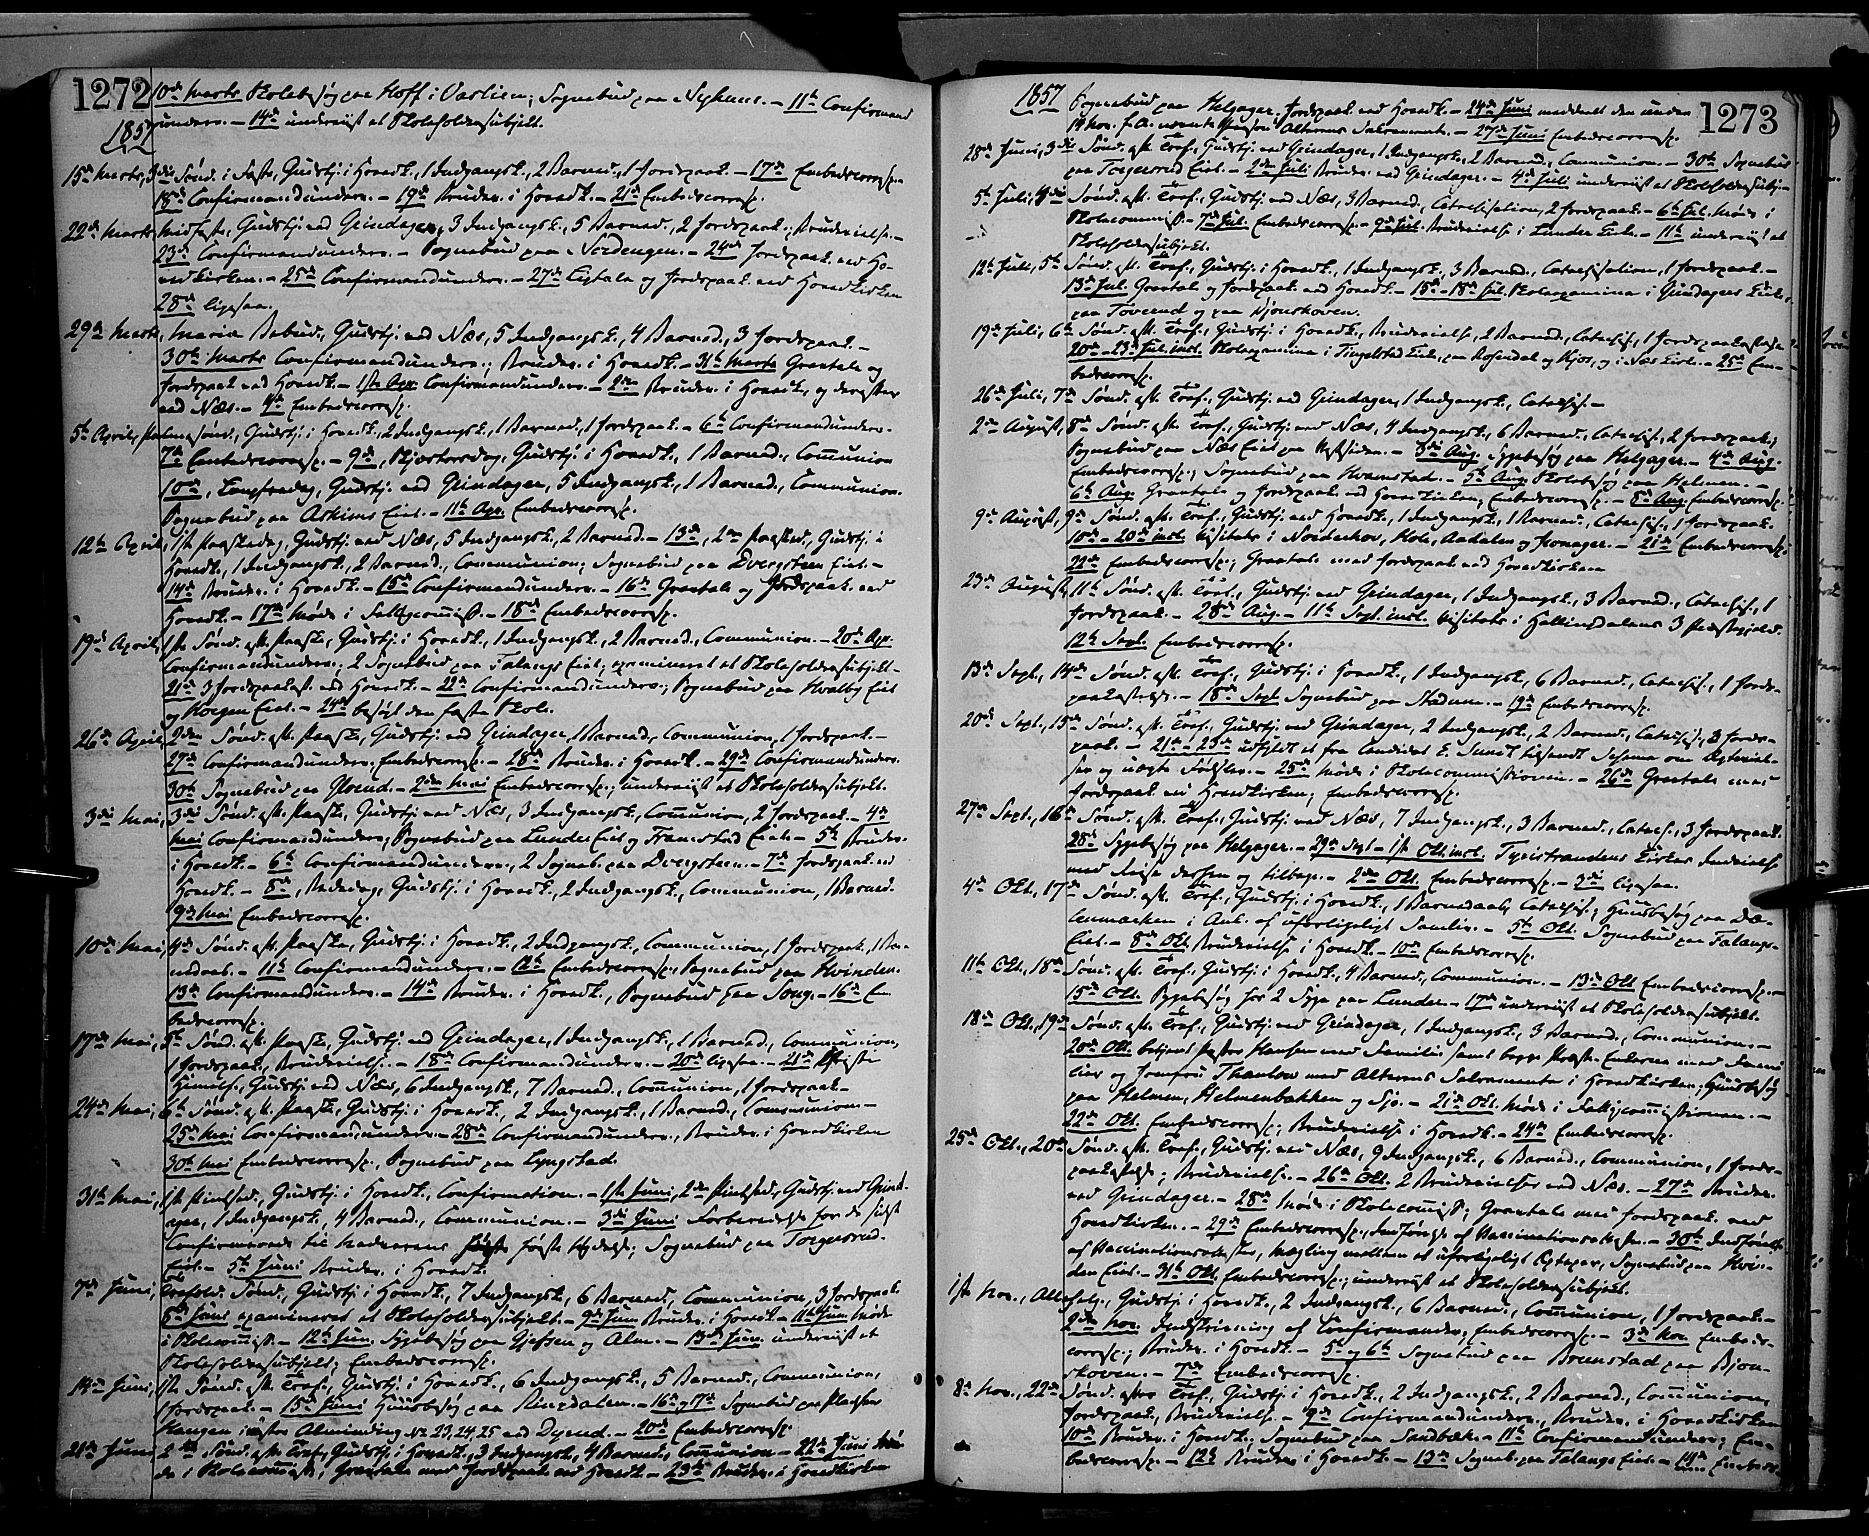 1272
10de Marts Skolebesøg paa Hoff i Oaslien; Sognebud paa . - 11te Confirmand
1857 underv. - 14de underviist et Skoleholdersubjekt.
15de Marts, 3die Sønd. i Faste, Gudstj. i Hovedk., 1 Indgangsk., 2 Barned., 1 Jordspaak. - 17de Embedscorresp. -
18de Confirmandunderv. - 19de Brudev. i Hovedk. - 21de Embedscorresp.
22de Marts, Midfaste, Gudstj. ved Grindager, 3 Indgangsk., 5 Barned., 2 Jordspaak., Brudevielse. -
23de Confirmandunderv. - Sognebud paa Nordengen. - 24de Jordspaak. ved Ho-
vedkirken. - 25de Confirmandunderv. - 27de Ligtale og Jordspaak. ved Hovedkirken
28de ligesaa.
29de Marts, Mariæ Bebud., Gudstj. ved Næs, 5 Indgangsk., 4 Barned., 3 Jordspaak. -
30te Marts Confirmandunderv.; Brudev. i Hovedk. - 31te Marts Gravtale og
Jordspaak. ved Hovedk. - 1ste Apr. Confirmandunderv. - 2den Brudev. i Hovedk. og derefter
ved Næs. - 4de Embedscorresp.
5te April, Palmesønd., Gudstj. i Hovedk., 2 Indgangsk., 1 Barned., 1 Jordspaak. - 6te Confirmandunderv.
7de Embedscorresp. - 9de, Skjærtorsdag, Gudstj. i Hovedk., 1 Barned., Communion
10de, Langfredag, Gudstj. ved Grindager, 5 Indgangsk., 1 Barned., Communion.
Sognebud paa Askims Eiet. - 11te Apr. Embedscorresp.
12te April, 1ste Paaskedag, Gudstj. ved Næs, 5 Indgangsk., 2 Barned. - 13de, 2den Paasked., Gudstj. i
Hovedk., 1 Indgangsk., 2 Barned., Communion; Sognebud paa Dvergsteen Eiet. -
14de Brudev. i Hovedk. - 15de Confirmandunderv. - 16de Gravtale og Jordspaak. ved
Hovedk. - 17de Møde i Fattigcommiss. - 18de Embedscorresp.
19de April, 1ste Sønd. eft. Paaske, Gudstj. i Hovedk., 1 Indgangsk., 2 Barned., Communion. - 20de Apr.
Confirmandunderv.; 2 Sognebud paa Falangs Eiet; examineret et Skoleholdersubjekt. -
21de 3 Jordspaakast. ved Hovedk. - 22de Confirmandunderv.; Sognebud paa Hvalby Eiet
og Horgen Eiet. - 24de besøgt den faste Skole.
26de April, 2den Sønd. eft. Paaske, Gudstj. ved Grindager, 1 Barned., Communion, 1 Jordspaak. -
27de Confirmandunderv. Embedscorresp. - 28de Brudev. i Hovedk. - 29de Confirmandunderv.
30te Sognebud paa . - 2den Mai Embedscorresp.; underviist et Skoleholdersubjekt.
3die Mai, 3die Sønd. eft. Paaske, Gudstj. ved Næs, 3 Indgangsk., Communion, 2 Jordspaak. - 4de
Mai Confirmandunderv.; Sognebud paa Lunder Eiet og Framstad Eiet. - 5te Brudev.
i Hovedk. - 6te Confirmandunderv., 2 Sogneb. paa Dvergsteen. - 7de Jordspaak. ved
Hovedk. - 8de, Bededag, Gudstj. i Hovedk., 2 Indgangsk., Communion, 1 Barned.
9de Mai Embedscorresp.
10de Mai, 4de Sønd. eft. Paaske, Gudstj. i Hovedk., 2 Indgangsk., Communion, 1 Jordspaak., 1 Bar-
nedaab. - 11te Confirmandunderv. - 12te Embedscorresp., Sognebud paa Hvinden.
13de Confirmandunderv. - 14de Brudev. i Hovedk., Sognebud paa Song. - 16de Em-
bedscorresp.
17de Mai, 5te Sønd. eft. Paaske, Gudstj. ved Grindager, 1 Indgangsk., 1 Barned., Communion,
1 Jordspaak., Brudevielse. - 18de Confirmandunderv. - 20de ligesaa. - 21de Christi
Himmelf., Gudstj. ved Næs, 6 Indgangsk., 7 Barned., Communion, 1 Jordspaak. -
24de Mai, 6te Sønd. eft. Paaske, Gudstj. i Hovedk., 2 Indgangsk., 1 Barned., Communion. -
25de Mai Confirmandunderv. - 28de Confirmandunderv., Brudev. i Hovedkirken
30te Mai Embedscorresp., Sognebud paa Lyngstad.
31te Mai, 1ste Pintsed., Gudstj. i Hovedk., Confirmation. - 1ste Juni, 2den Pintsed., Gudstj. ved Grind-
ager, 1 Indgangsk., 4 Barned., Communion. - 3die Juni Forberedelse for de sidst
Confirmerede til Nadverens første Nydelse; Sognebud paa Torgersrud
Eiet. - 5te Juni Brudev. i Hovedk.
7de Juni, Trefold. Sønd., Gudstj. i Hovedk., 7 Indgangsk., 6 Barned., Communion, 3 Jordspaak.
8de Juni examineret et Skoleholdersubjekt. - 9de Juni Brudev. i Hovedk. - 11te Juni Møde
i Skolecommiss. - 12te Juni Sygebesøg paa Gjefsen og Alm. - 13de Juni underviist et
Skoleholdersubjekt; Embedscorresp.
14de Juni, 1ste Sønd. eft. Tref., Gudstj. i Hovedk., 6 Indgangsk., 5 Barned., Communion,
1 Jordspaak. - 15de Juni Huusbesøg paa Ringdalen. - 16de og 17de Sognebud paa
Haugen Alminding No 23, 24, 25 ved Dynnd. - 20de Embedscorresp.
21de Juni, 2den Sønd. eft. Tref., Gudstj. i Hovedk., 3 Indgangsk., 4 Barned., Communion. - 22de Juni Mø-
de i Skolecommiss., Gravtale med Jordspaak. ved Hovedk. - 23de Brudev. i Hovedkirken
1273
1857 Sognebud paa Helgager, Jordspaak. ved Hovedk. - 24de Juni meddeelt den under
19 Nov. f. A. nævnte Person Alterens Sakramente. - 27de Juni Embedscorresp.
28de Juni, 3die Sønd. eft. Tref., Gudstj. ved Grindager, 1 Indgangsk., 2 Barned., Communion. - 30te Sognebud
paa Torgersrud Eiet. - 2den Juli Brudev. ved Grindager. - 4de Juli underviist et Skoleholdersubj. -
5te Juli, 4de Sønd. eft. Tref., Gudstj. ved Næs, 3 Barned., Catechisation, 2 Jordspaak. - 6te Jul. Møde i
Skolecommiss. - 7de Jul. Embedscorresp. - 9de Jul. Brudevielse i Lunder Kirke. - 11te underviist et
Skoleholdersubjekt.
12te Juli, 5te Sønd. eft. Tref., Gudstj. i Hovedk., 1 Indgangsk., 3 Barned., Catechisation, 1 Jordspaak. -
13de Jul. Gravtale og Jordspaak. ved Hovedk. - 15de - 18de Jul. Skoleexamina i Grindagers Kirke,
paa Toverud og paa Bjoneskoven.
19de Juli, 6te Sønd. eft. Tref., Gudstj. i Hovedk., Brudevielse, 2 Barned., Catechis., 1 Jordspaakastelse
20de - 23de Jul. incl. Skoleexamina i Tingelstad Kirke, paa Rosendal og Kjos, og i Næs Kirke. - 25de Em-
bedscorresp.
26de Juli, 7de Sønd. eft. Tref., Gudstj. ved Grindager, 1 Indgangsk., Catechis. -
2den August, 8de Sønd. eft. Tref., Gudstj. ved Næs, 4 Indgangsk., 6 Barned., Catechis., 2 Jordspaak.;
Sognebud paa Næs Eiet paa Vestsiden. - 3die Aug. Sygebesøg paa Helgager. - 4de Aug.
Embedscorresp.; Sognebud paa Hvamstad. - 5te Aug. Skolebesøg paa Helmen. -
6te Aug. Gravtale og Jordspaak. ved Hovedkirken; Embedscorresp. - 8de Aug. Embedscorresp.
9de August, 9de Sønd. eft. Tref., Gudstj. ved Hovedk., 1 Indgangsk., 1 Barned., Catechis., 1 Jordspaak.
10de - 20de incl. Visitats i Norderhov, Hole, Aadalen og Jevnager. - 21de Embedscorresp.
22de Embedscorresp.; Gravtale med Jordspaak. ved Hovedkirken
23de August, 11te Sønd. eft. Tref., Gudstj. ved Grindager, 1 Indgangsk., 3 Barned., Catechis., 1
Jordspaak. - 28de Aug. - 11te Sept. incl. Visitats i Hallingdalens 3 Præstegjeld.
12te Sept. Embedscorresp.
13de Sept., 14de Sønd. eft. Tref., Gudstj. i Hovedk., 1 Indgangsk., 6 Barned., Catechis., 1 Jords-
paakastelse. - 18de Sept. Sognebud paa Stadum. - 19de Embedscorresp.
20de Sept., 15de Sønd. eft. Tref., Gudstj. ved Grindager, 2 Indgangsk., 2 Barned., Catechis., 3 Jords-
paak. - 21de - 23de udfyldt et fra Candidat E. Sundt tilsendt Schema om Ægteviel-
ser og uægte Fødsler. - 25de Møde i Skolecommissionen. - 26de Gravtale med
Jordspaak. ved Hovedkirken; Embedscorresp.
27de Sept., 16de Sønd. eft. Tref., Gudstj. ved Næs, 7 Indgangsk., 3 Barned., Catech., 3 Jordspaak.
28de Sygebesøg paa Helgager. - 29de Sept. - 1ste Okt. incl. Tyristrandens Kirkes Indvielse
med Reise dertil og tilbage. - 2den Okt. Embedscorresp. - 3die ligesaa.
4de Okt., 17de Sønd. eft. Tref., Gudstj. i Hovedk., 1 Barnedaab, Catechis.; Huusbesøg paa Dæ-
lenmarken i Anl. af uforligeligt Samliv. - 5te Okt. Sognebud paa Falangs-
Eiet. - 8de Okt. Brudevielse i Hovedk. - 10de Embedscorresp.
11te Okt., 18de Sønd. eft. Tref., Gudstj. i Hovedk., 4 Barned., Communion. - 13de Okt. Embedscorresp. -
15de Okt. Sygebesøg hos 2 Syge paa Lunder. - 17de underviist et Skoleholdersubjekt.
18de Okt., 19de Sønd. eft. Tref., Gudstj. ved Grindager, 1 Indgangsk., 3 Barned., Communion. -
20de Okt. betjent Pastor Hansen med Familie samt begge Præste-Enkerne med Fami-
lier og Jomfru Thaulow med Alterens Sakramente i Hovedkirken, Huusbesøg
paa Helmen, Helmenbakken og Sjo. - 21de Okt. Møde i Fattigcommissionen. -
22de Okt. Embedscorresp.; Brudevielse i Hovedk. - 24de Embedscorresp.
25de Okt., 20de Sønd. eft. Tref., Gudstj. ved Næs, 9 Indgangsk., 6 Barned., Communion, 1 Jords-
paakastelse; Brudevielse. - 26de Okt. 2 Brudevielser ved Næs. - 27de Brudev.
ved Grindager. - 28de Møde i Skolecommiss.; Gravtale med Jordspaak. ved
Hovedkirken. - 29de Embedscorresp., Indførsel af Vaccinationsattester. - 30te Indførsel
af Vaccinationsattester, Mægling mellem et uforligeligt Ægtepar, Sognebud paa Hvin-
den Eiet. - 31te Okt. Embedscorresp.; underviist et Skoleholdersubjekt.
1ste Nov., Allehelg., Gudstj. i Hovedk., 2 Indgangsk., 6 Barned., Communion, 1 Jordspaak. -
2den Nov. Indskrivning af Confirmander, Embedscorresp. - 3die Nov. Embeds-
corresp.; Brudev. i Hovedk. - 5te og 6te Sognebud paa Brunstad paa Bjone-
skoven. - 7de Embedscorresp.
8de Nov., 22de Sønd. efter Tref., Gudstj. i Hovedk., 2 Indgangsk., 2 Barned., Communion,
Jordspaak., Brudevielse. - 9de Confirmandunderv., Brudev. i Hovedkirken
10de Brudev. i Hovedk.; Sognebud paa Sandbæk. - 11te Confirmandunderv.; Em-
bedscorresp. - 12te Brudev. i Hovedk. - 13de Sogneb. paa Falangs Eiet. - 14de Embeds-